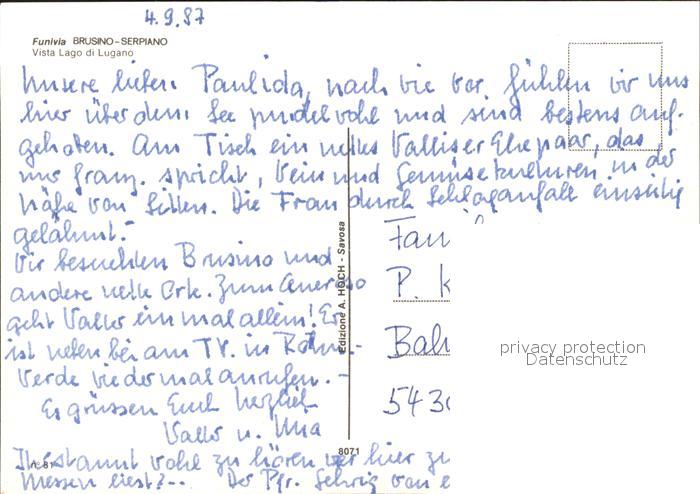 4.9.87
Funivia BRUSINO-SERPIANO
Vista Lago di Lugano
Unsere lieben Paulida, nach wie vor fühlen wir uns
hier über dem See pudelwohl und sind bestens auf-
gehoben. Am Tisch ein nettes Walliser Ehepaar, das
nur franz. spricht, Wein und Gemüsekulturen in der
Nähe von Sitten. Die Frau durch Schlaganfall einseitig
gelähmt.-
Wir besuchten Brusino und
andere nette Orte. Zum Generoso
geht Walter einmal allein! Er
ist neben bei am TV. in Rom.-
Werde wieder mal anrufen.-
Es grüssen Euch herzlich
u.
Ihr staunt wohl zu hören wer hier zu
Messen liest?-- Der Pfr. von
Edizione A. HOCH - Savosa
8071
Fam
P. K
Bah
543
privacy protection
Datenschutz